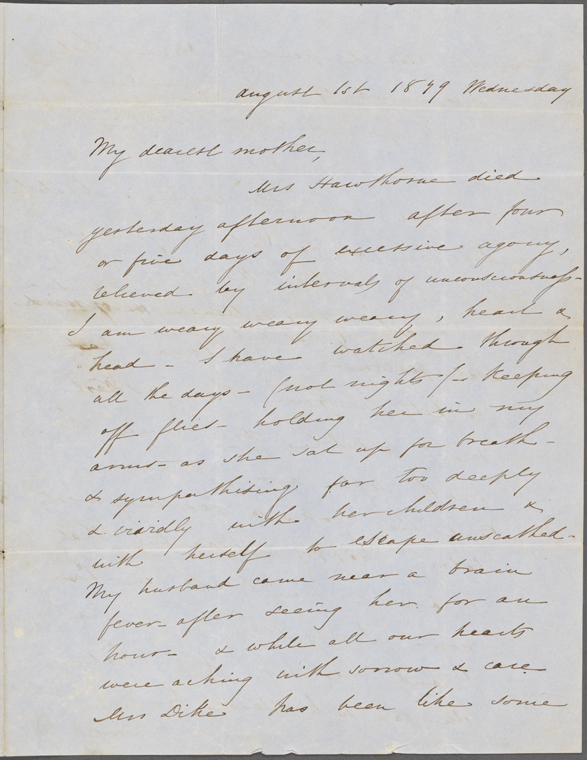 august 1st 1849 Wednesday
My dearest mother,
Mrs Hawthorne died
yesterday afternoon after four
or five days of excessive agony,
relieved by intervals of unconsciousness-
I am weary weary weary, heart &
head - I have watched through
all the days - (not nights) - keeping
off flies - holding her in my
arms - as she sat up for breath -
& sympathising far too deeply
& vividly with her children &
with herself to escape unscathed -
My husband came near a brain
fever - after seeing her for an
hour - & while all our hearts
were aching with sorrow & care
Mrs Dike has been like some